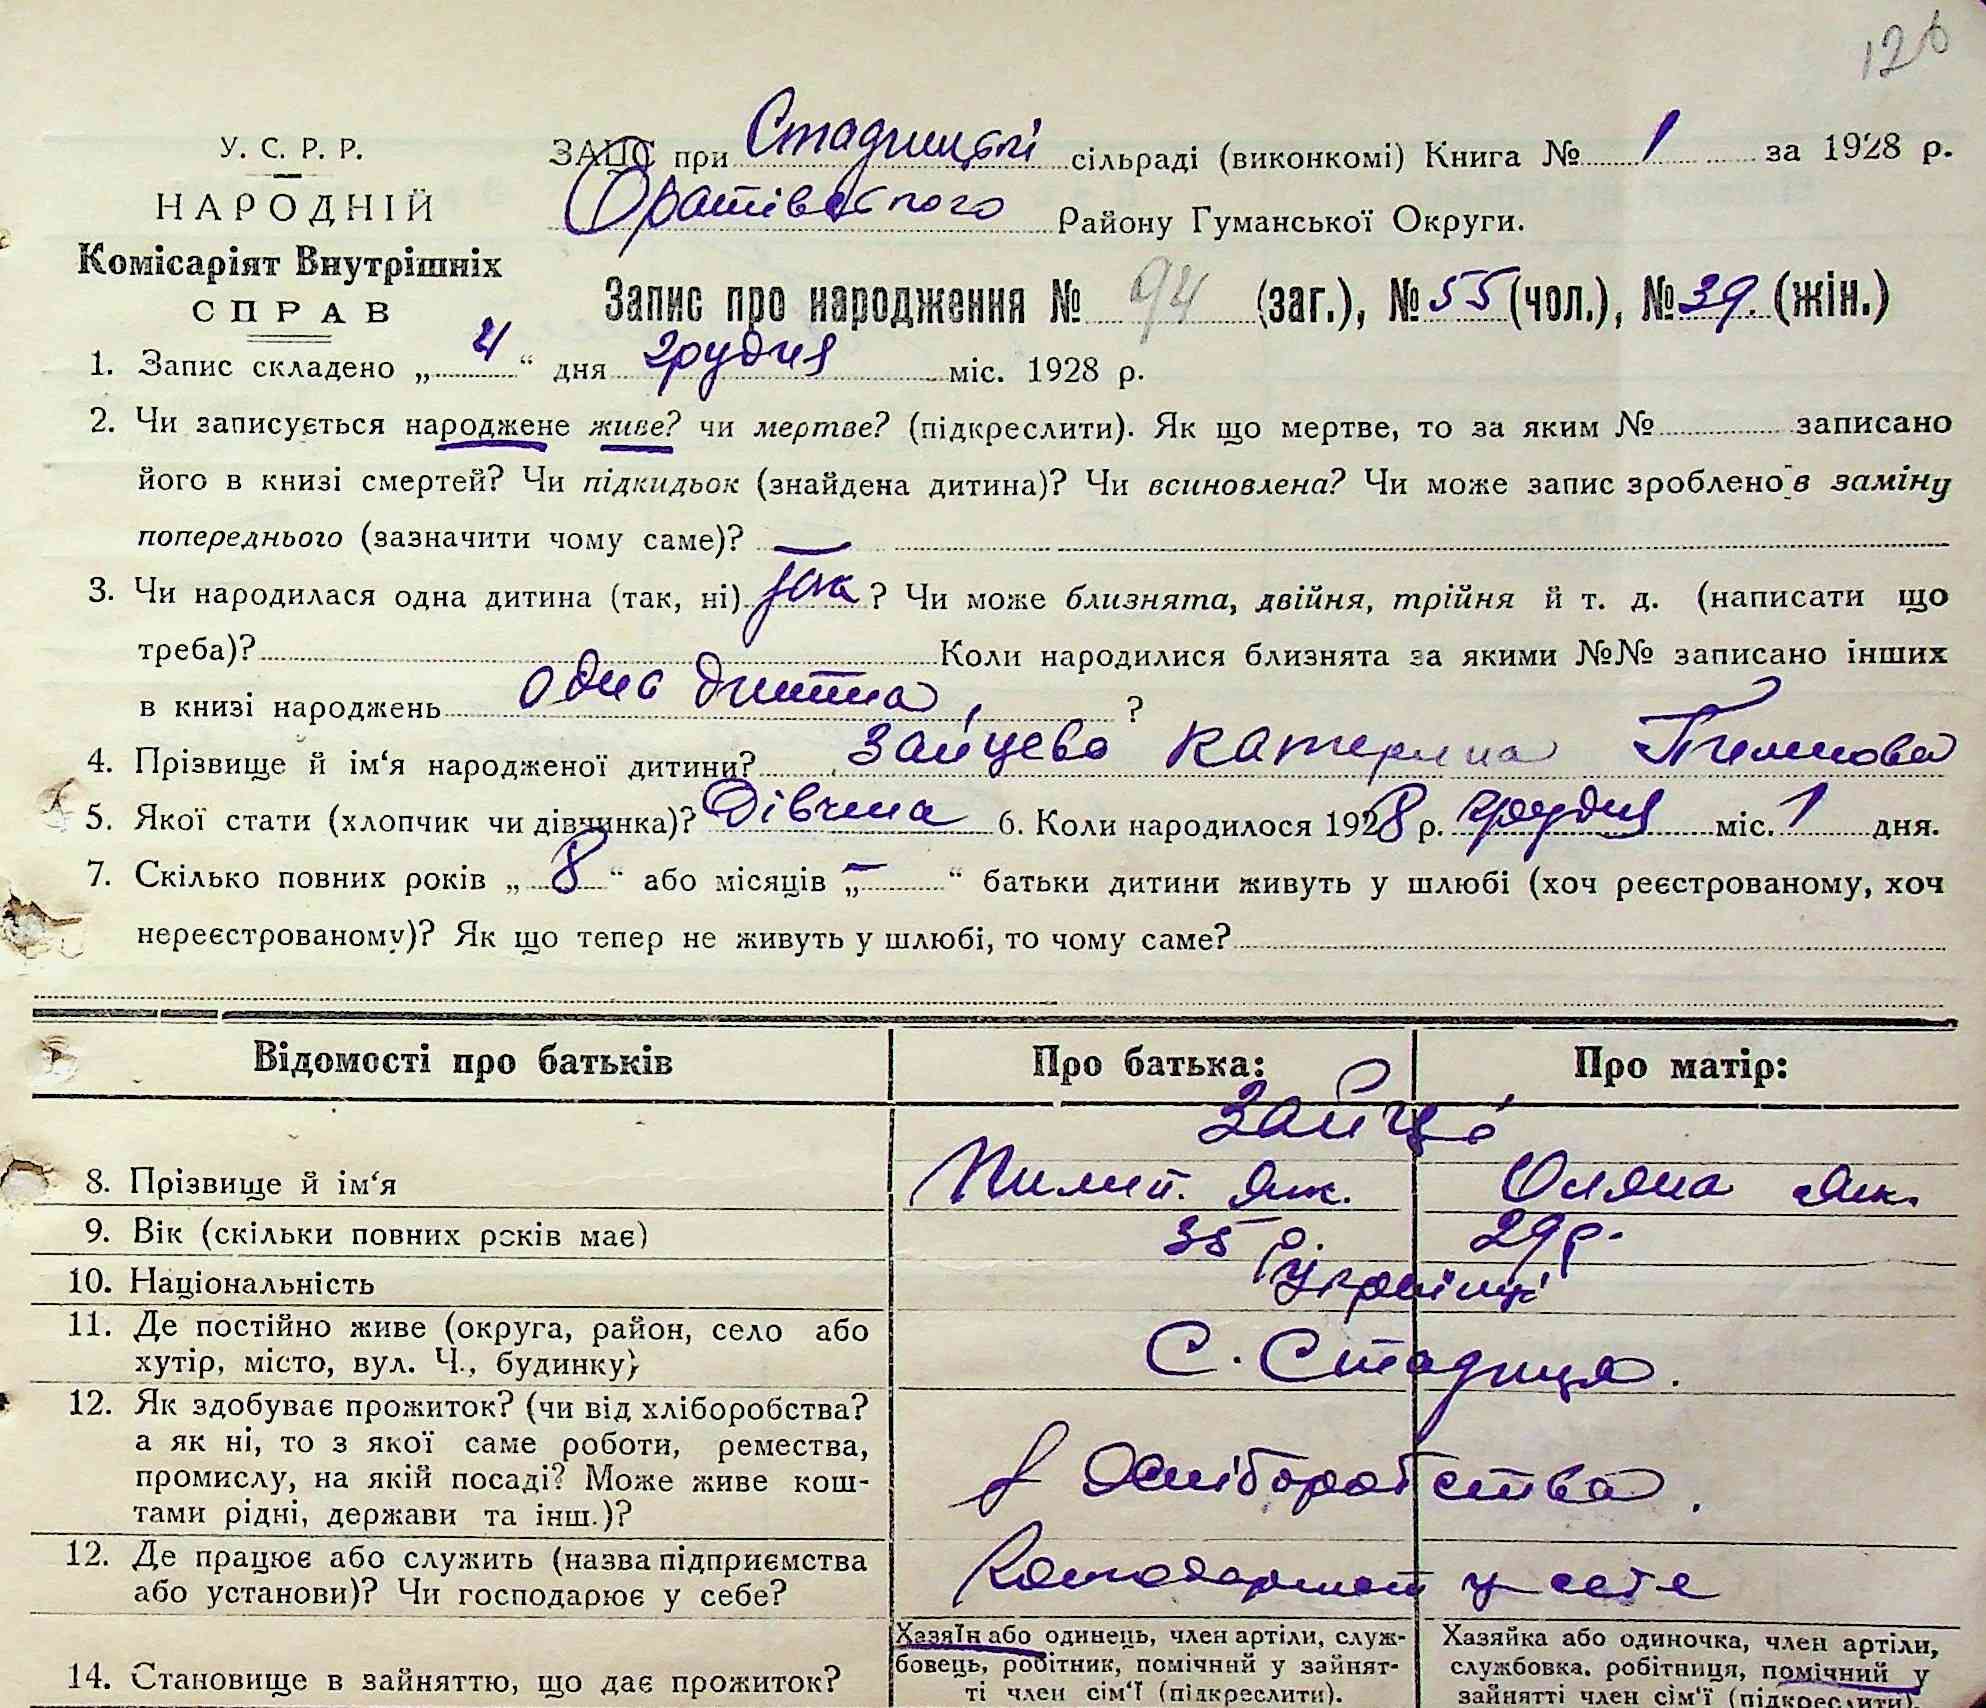 126
У. С. Р. Р.
НАРОДНІЙ
Комісаріят Внутрішніх
СПРАВ
ЗАПС при Стадницькі сільраді (виконкомі) Книга № 1 за 1928 р.
Оратівського Району Гуманської Округи.
Запис про народження № 94 (заг.), № 55 (чол.), № 39. (жін.)
1. Запис складено „ 4 “ дня грудня міс. 1928 р.
2. Чи записується народжене живе? чи мертве? (підкреслити). Як що мертве, то за яким № записано
його в книзі смертей? Чи підкидьок (знайдена дитина)? Чи всиновлена? Чи може запис зроблено в заміну
попереднього (зазначити чому саме)? —
3. Чи народилася одна дитина (так, ні) так ? Чи може близнята, двійня, трійня й т. д. (написати що
треба)? Коли народилися близнята за якими №№ записано інших
в книзі народжень одна дитина, ?
4. Прізвище й ім‘я народженої дитини? Зайцева Катерина
5. Якої стати (хлопчик чи дівчинка)? Дівчина 6. Коли народилось 1928 р. грудня міс. 1 дня.
7. Скілько повних років „ 8 “ або місяців „ – “ батьки дитини живуть у шлюбі (хоч реєстрованому, хоч
нереєстрованому)? Як що тепер не живуть у шлюбі, то чому саме?
Відомості про батьків Про батька: Про матір:
8. Прізвище й ім‘я Пилип. Як. Оляна Як.
9. Вік (скільки повних років має) 35 р. 29 р.
10. Національність Українці
11. Де постійно живе (округа, район, село або
хутір, місто, вул. Ч., будинку)
С. Стадниця.
12. Як здобуває прожиток? (чи від хліборобства?
а як ні, то з якої саме роботи, ремества,
промислу, на якій посаді? Може живе кош-
тами рідні, держави та інш.)?
з хліборобства.
12. Де працює або служить (назва підприємства
або установи)? Чи господарює у себе?
у себе
14. Становище в зайняттю, що дає прожиток?
Хазяїн або одинець, член артіли, служ-
бовець, робітник, помічний у зайнят-
ті член сім'ї (підкреслити).
Хазяйка або одиночка, член артіли,
службовка. робітниця, помічний у
зайнятті член сім'ї (підкреслити)